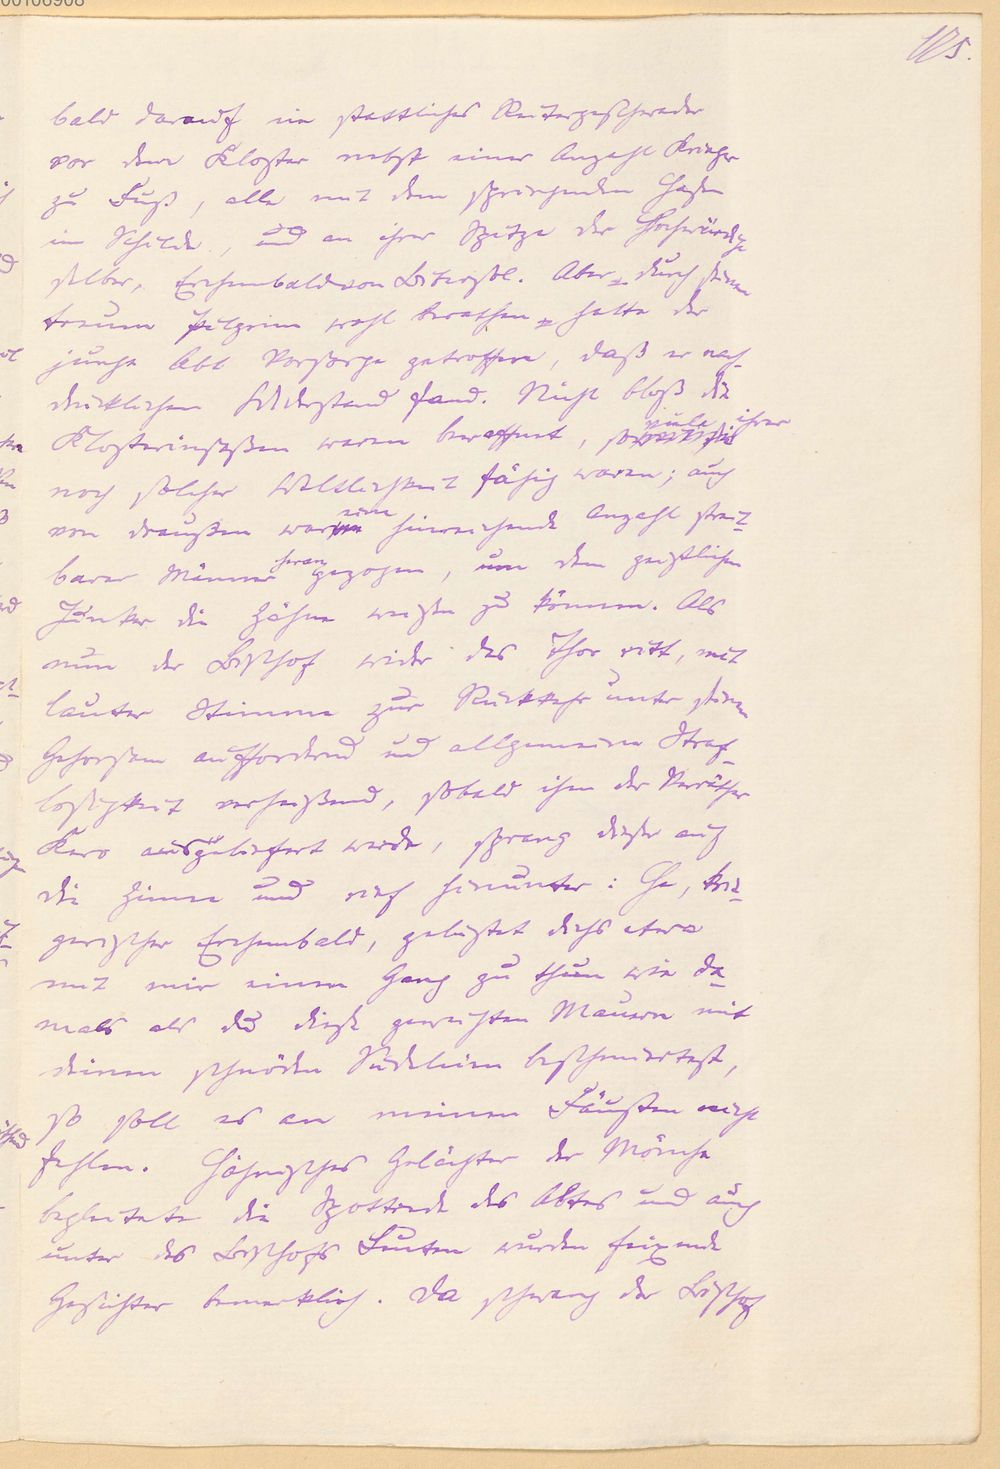 00106908
175.
bald darauf ein stattliches Reitergeschwader
vor dem Kloster nebst einer Anzahl Krieger
zu Fuß, alle mit dem springenden Hasen
im Schilde, und an ihrer Spitze der Hochwürdige
selber, Erchembald von . Aber durch seinen
treuen Pilgrim wohl berathen hatte der
junge Abt Vorsorge getroffen, daß er nach-
drücklichen Widerstand fand. Nicht bloß die
Klosterinsaßen waren bewaffnet, so viele ihrer
noch solcher Weltlichkeit fähig waren; auch
von draußen war eine hinreichende Anzahl streit-
barer Männer herangezogen, um dem geistlichen
Junker die Zähne weisen zu können. Als
nun der Bischof wider das Thor ritt, mit
lauter Stimme zur Rückkehr unter seinen
Gehorsam auffordernd und allgemeine Straf-
losigkeit verheißend, sobald ihm der Verräther
Kero ausgeliefert werde, sprang dieser auf
die Zinne und rief hinunter: He, krie-
gerischer Erchembald, gelüstet dichs etwa
mit mir einen Gang zu thun wie da-
mals als du diese geweihten Mauern mit
deinen schnöden Sudeleien beschmiertest,
so soll es an meinen Fäusten nicht
fehlen. Höhnisches Gelächter der Mönche
begleitete die Spottrede des Abtes und auch
unter des Bischofs Leuten wurden feixende
Gesichter bemerklich. Da schwang der Bischof